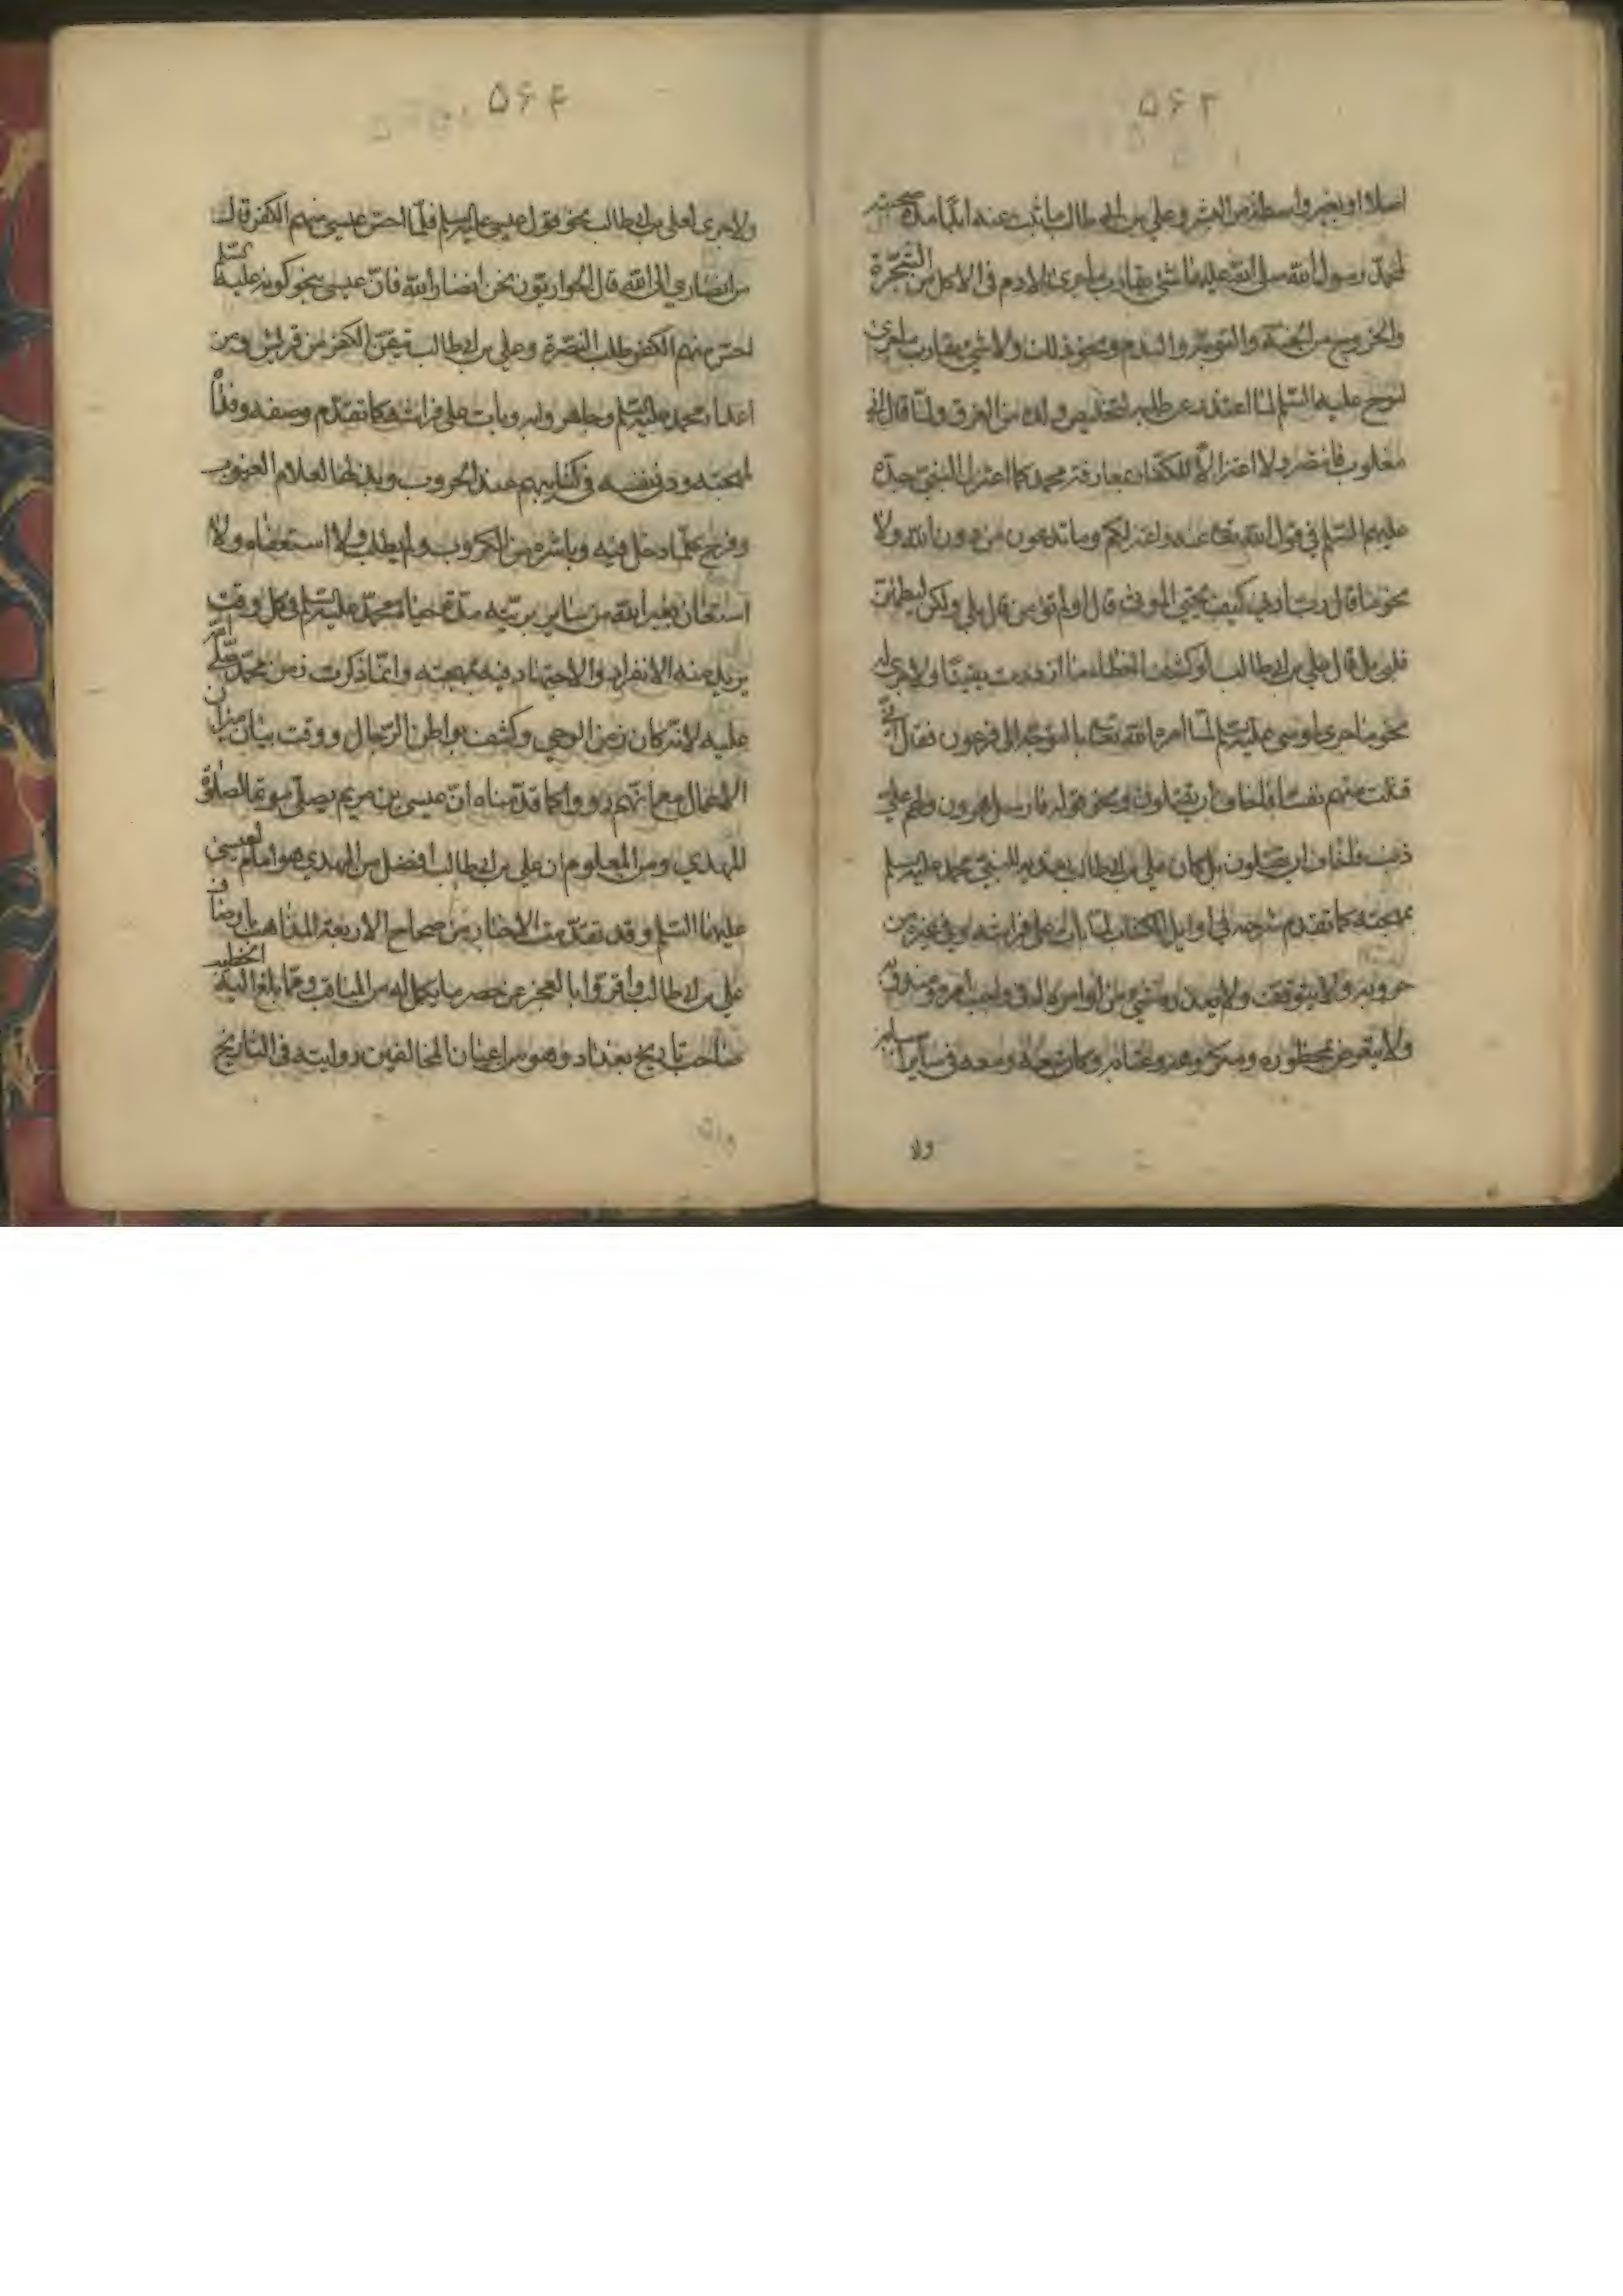 ۵۶۳
اصلا او بغير واسطة من البشر وعلي بن ابي طالب ما ثبت عنه ابدا مدة صحبته
لمحمد رسول الله صلى الله عليه ما شئ يقارب ما جرى لادم في الاكل من الشجرة
والخروج من الجنة والتوبة والندم ونحو ذلك ولا شئ يقارب ما جرى
لنوح عليه السلم لما اعتذر عن طلبه لتخليص ولده من الغرق ولما قال اني
مغلوب فانتصر ولا اعتزالا للكفار بمفارقة محمد كما اعتزل النبي جده
عليهم السلم في قول الله تعا عنه واعتزلكم وما تدعون من دون الله ولا
نحو ما قال رب ارني كيف تحيي الموتى قال اولم تؤمن قال بلى ولكن ليطمئن
قلبي بل قال علي بن ابي طالب لو كشف الغطاء ما ازددت يقينا ولا جرى له
نحو ما جرى لموسى عليه السلم لما امره الله تعا بالتوجه الى فرعون فقال اني
قتلت منهم نفسا فاخاف ان يقتلون ونحو قوله فارسل الى هرون ولهم علي
ذنب فاخاف ان يقتلون بل كان علي بن ابي طالب يفدي النبي محمد عليه السلم
بمهجته كما تقدم شرحه في اوايل الكتاب لما بات على فراشه وفي غيره من
حروبه ولا يتوقف ولا يعتذر في شئ من اوامره له في واجب امره ومندوبه
ولا يتعرض لمحظوره ومكروهه وكان معه في ساير
ولا
۵۶۴
ولا جرى لعلي بن ابي طالب نحو قول عيسى عليه السلم فلما احس عيسى منهم الكفر قال
من انصاري الى الله قال الحواريون نحن انصار الله فان عيسى بنحو كونه عليه السلم
احس منهم الكفر طلب النصرة وعلي بن ابي طالب تيقن الكفر من قريش ومن
اعداء محمد عليه السلم وجاهروا به وبات على فراشه كما تقدم وصفه وفداه
بمهجته ورمى نفسه في كتايبهم عند الحروب وبذلها لعلام الغيوب
وفرح بما دخل فيه وباشره من الكروب ولم يطلب ولا استعفاء ولا
استعان بغير الله من ساير بريته مدة حياة محمد عليه السلم في كل وقت
يريد منه الانفراد والاجتهاد فيه بمهجته وانما ذكرت زمن محمد صلى الله
عليه لانه كان زمن الوحي وكشف بواطن الرجال ووقت بيان ميزان
الاعمال مع انهم رووا كما قدمناه ان عيسى بن مريم يصلي مؤتما الصلوة
للمهدي ومن المعلوم ان علي بن ابي طالب افضل من المهدي هو امام لعيسى
عليهما السلم وقد تقدمت الاخبار من صحاح الاربعة المذاهب اوصاف
علي بن ابي طالب واقروا بالعجز عن حصر ما يكمل له من المناقب ومما بلغ اليه الخطيب
صاحب تاريخ بغداد وهو من اعيان المخالفين روايته في التاريخ